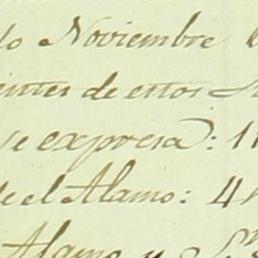 do Noviembre
de estos
se expresa: 1
de el Alamo: 4
Alamo y